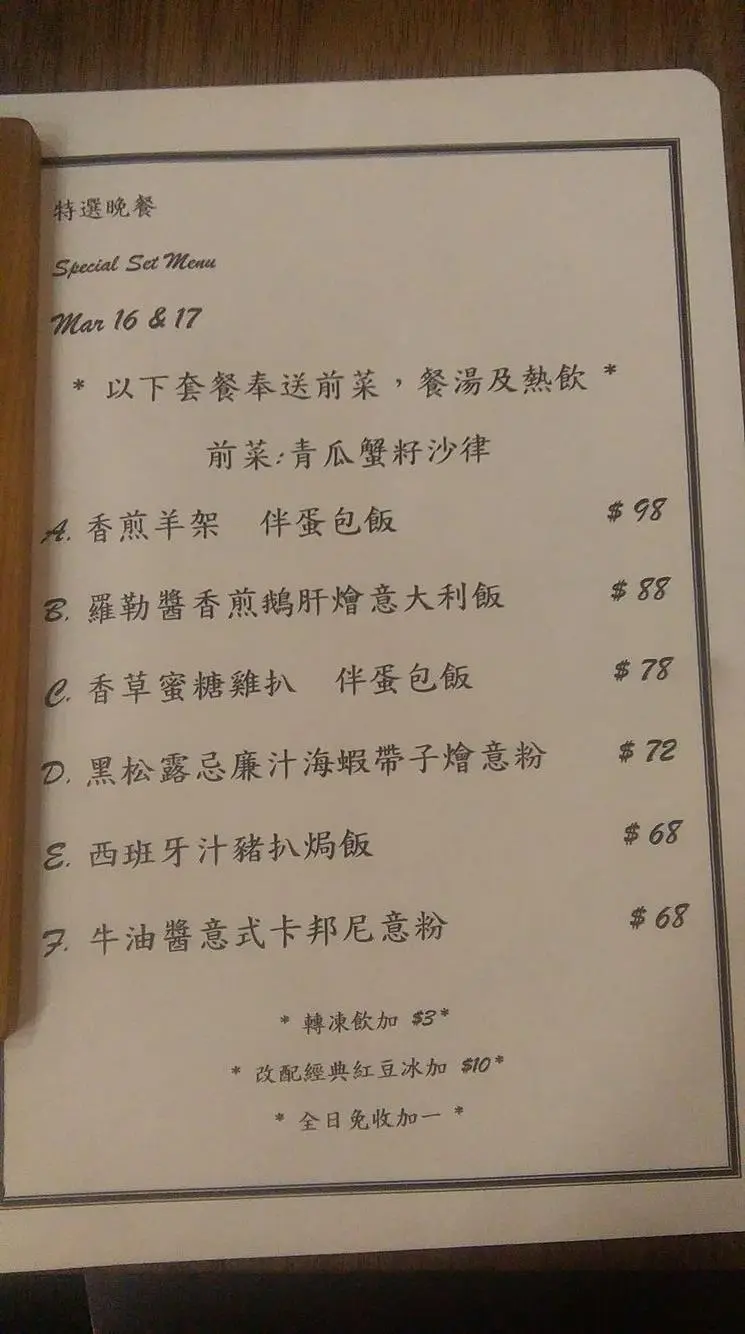 特選晚餐
Special Set Menu
Mar 16 & 17
* 以下套餐奉送前菜，餐湯及熱飲 *
前菜:青瓜蟹籽沙律
A. 香煎羊架 伴蛋包飯 $ 98
B. 羅勒醬香煎鵝肝燴意大利飯 $ 88
C. 香草蜜糖雞扒 伴蛋包飯 $ 78
D. 黑松露忌廉汁海蝦帶子燴意粉 $ 72
E. 西班牙汁豬扒焗飯 $ 68
F. 牛油醬意式卡邦尼意粉 $ 68
* 轉凍飲加 $3 *
* 改配經典紅豆冰加 $10 *
* 全日免收加一 *